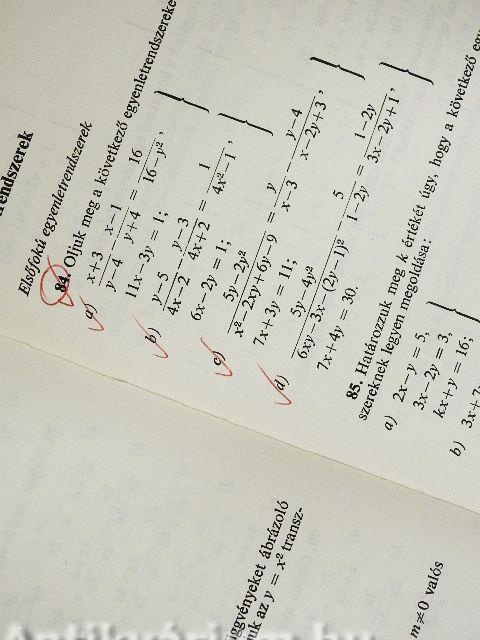 rendszerek
Elsőfokú egyenletrendszerek
84. Oljuk meg a következő egyenletrendszereke
a) \frac{x+3}{y-4} - \frac{x-1}{y+4} = \frac{16}{16-y²},
11x-3y = 1;
b) \frac{y-5}{4x-2} - \frac{y-3}{4x+2} = \frac{1}{4x²-1},
6x-2y = 1;
c) \frac{5y-2y²}{x²-2xy+6y-9} = \frac{y}{x-3} - \frac{y-4}{x-2y+3},
7x+3y = 11;
d) \frac{5y-4y²}{6xy-3x-(2y-1)²} - \frac{5}{1-2y} = \frac{1-2y}{3x-2y+1},
7x+4y = 30.
85. Határozzuk meg k értékét úgy, hogy a következő egy
szereknek legyen megoldása:
a) 2x-y = 5,
3x-2y = 3,
kx+y = 16;
b) 3x+7
üggvényeket ábrázoló
uk az y = x² transz-
m≠0 valós
Antikvárium.hu